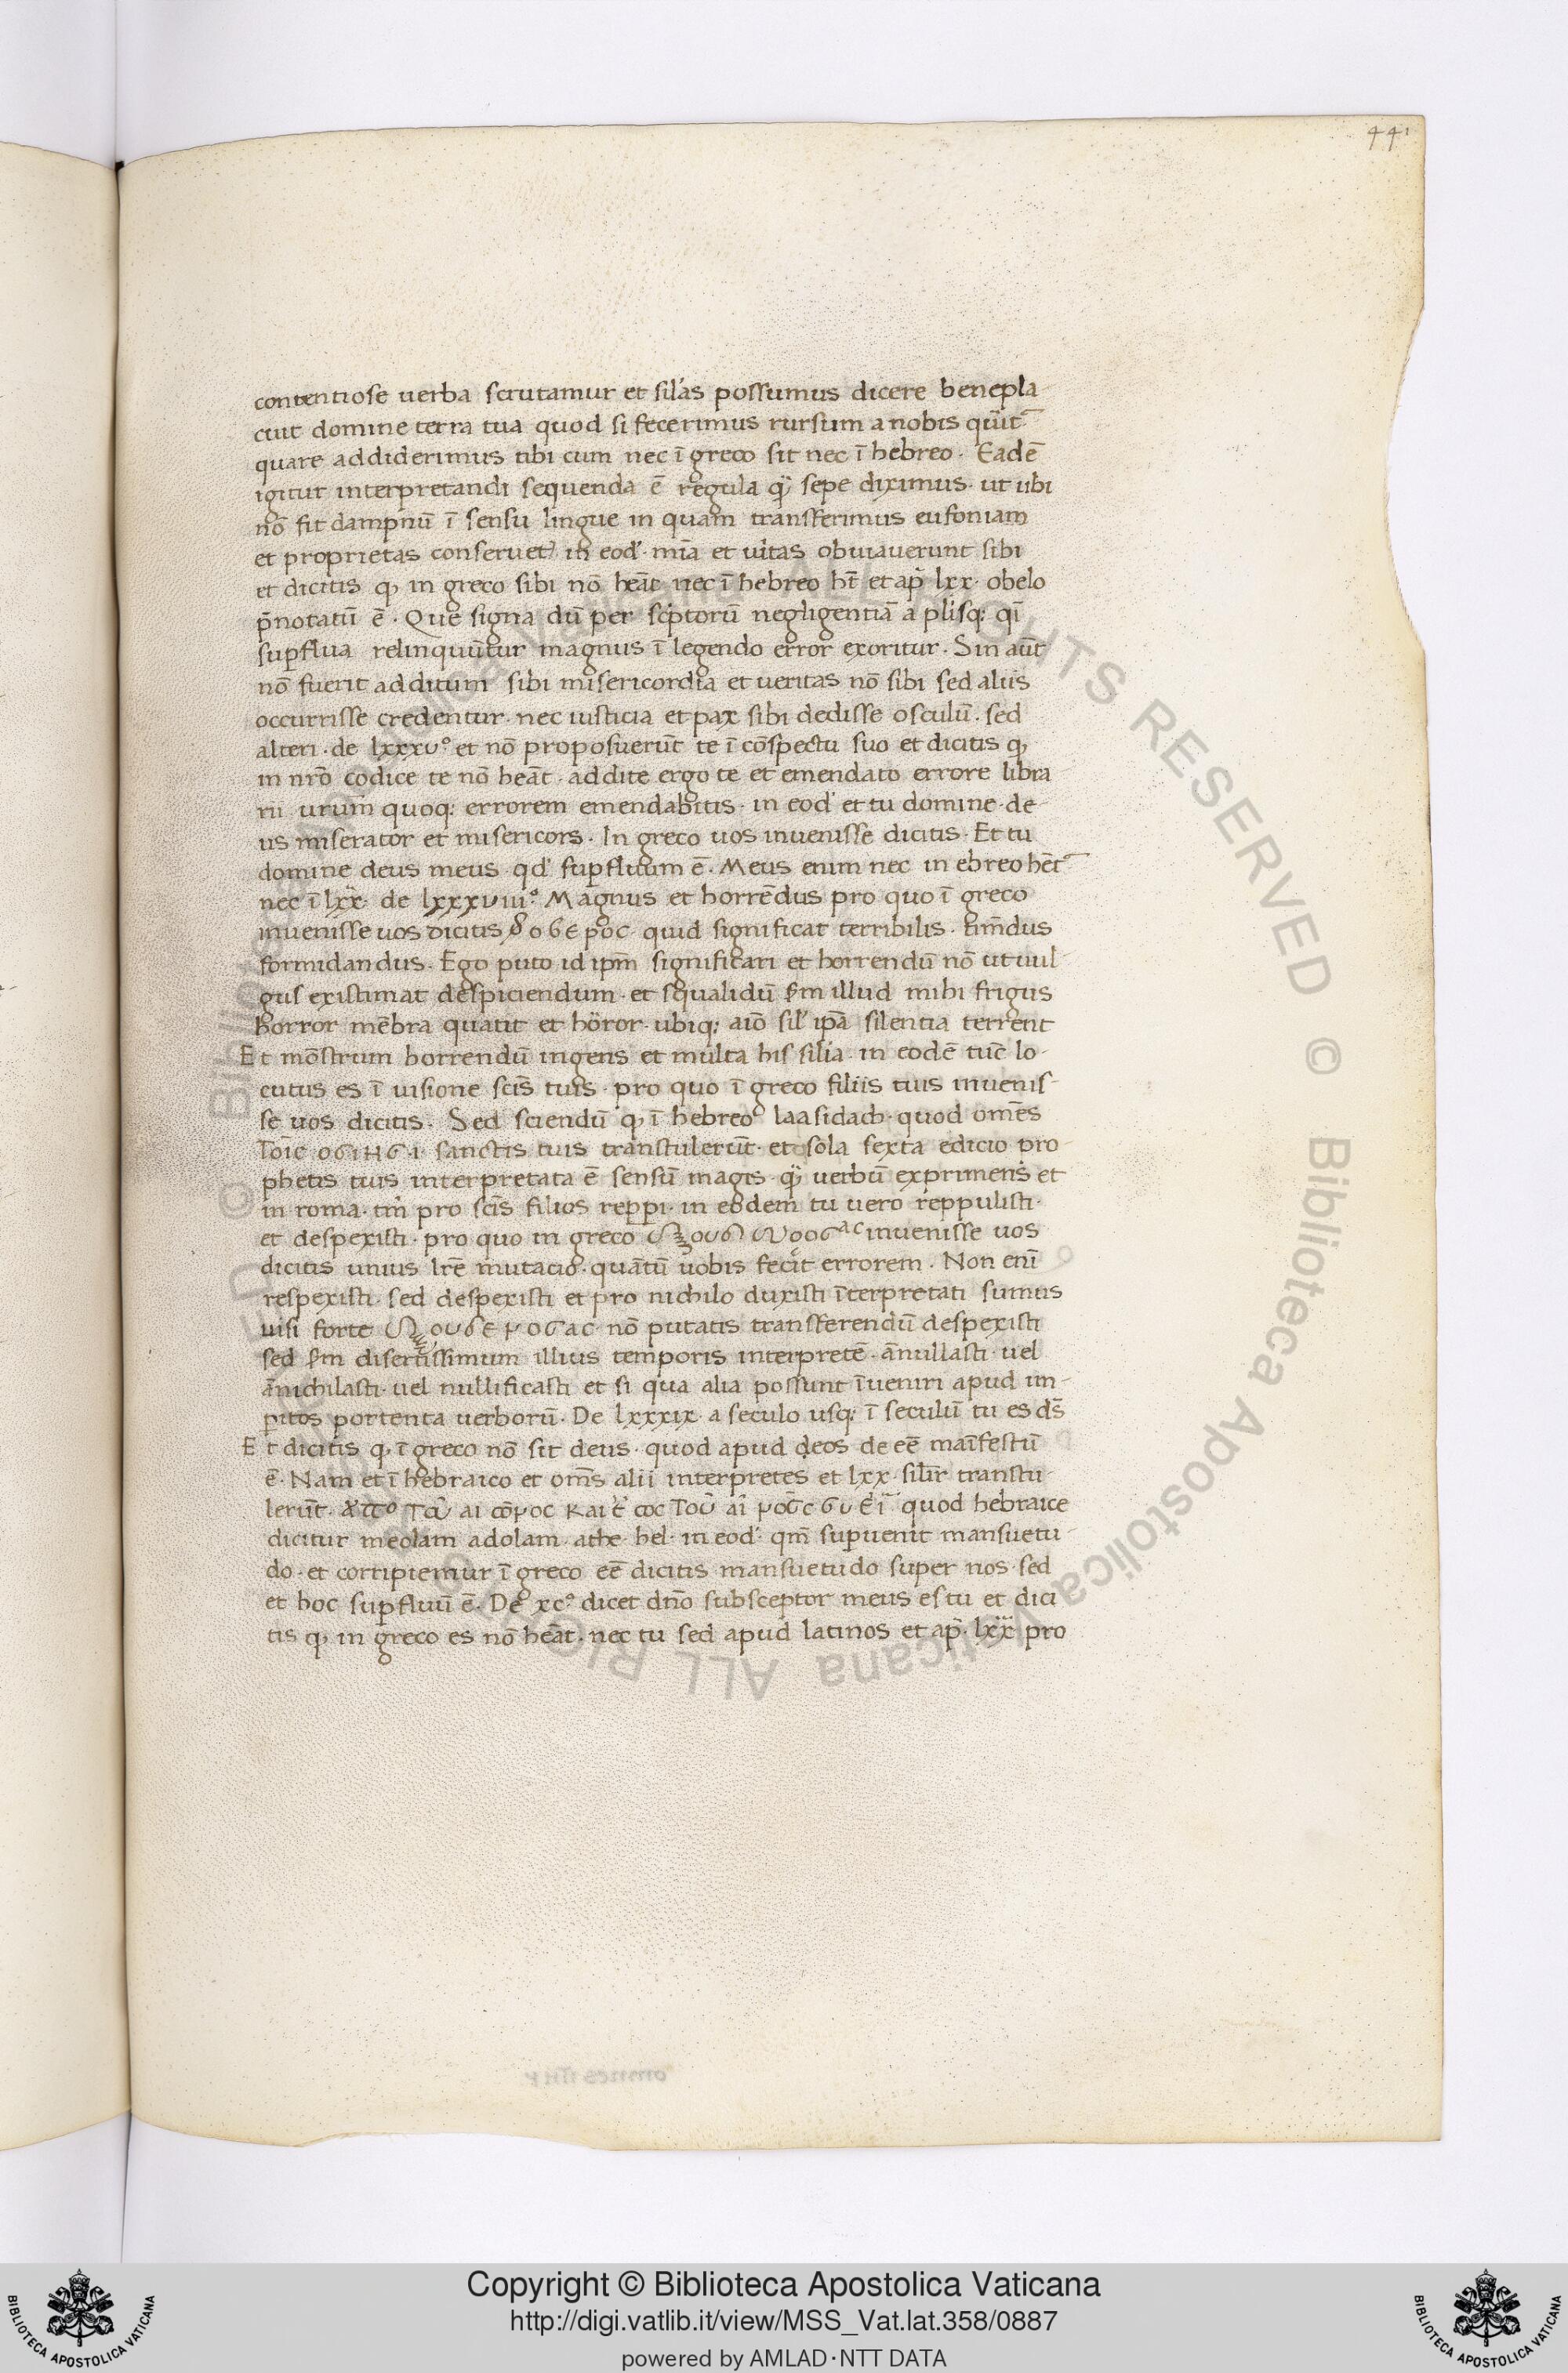 441
contentiose uerba scrutamur et sil'as possumus dicere benepla-
cuit domine terra tua quod si fecerimus rursum a nobis
quare addiderimus tibi cum nec ī greco sit nec ī hebreo. Eadē
igitur interpretandi sequenda ē regula qͣ sepe diximus. ut ubi
nō fit dampnū ī sensu lingue in quam transferimus eufoniam
et proprietas conseruet᷑ in eod'. mīa et uītas obuiauerunt sibi
et dicitis ꝙ in greco sibi nō heāt nec ī hebreo ht̄ et ap̄ lxx. obelo
p̄notatū ē. Que signa dū per sc̄ptorū negligentiā a pl'isq; q̄i
suꝑflua relinquūtur magnus ī legendo error exoritur. Sin aūt
nō fuerit additum sibi misericordia et ueritas nō sibi sed aliis
occurrisse credentur. nec iusticia et pax sibi dedisse osculū. sed
alteri. de lxxxvº et nō proposuerūt te ī cōspectu suo et dicitis ꝙ
in nrō codice te nō heāt. addite ergo te et emendato errore libra
rii urum quoq; errorem emendabitis. in eod' et tu domine. de-
us miserator et misericors. In greco uos inuenisse dicitis. Et tu
domine deus meus. qd' suꝑfluum ē. Meus enim nec in ebreo hēt
nec ī lxx. de lxxxviiiº. Magnus et horrēdus pro quo ī greco
inuenisse uos dicitis φοβεροc. quid significat terribilis. timēdus
formidandus. Ego puto id ipm̄ significari et horrendū nō ut uul-
gus existimat despiciendum. et squalidū ẜm illud mihi frigus
horror mēbra quatit et horror. ubiq; aīo sil' ipā silentia terrent
Et mōstrum horrendū ingens et multa his silia. in eodē tūc lo-
cutus es ī uisione scīs tuis. pro quo ī greco filiis tuis inuenis-
se uos dicitis. Sed sciendū ꝙ ī hebreo laasidach. quod omēs
Τοιc οσιησι sanctis tuis transtulerūt. et sola sexta edicio pro-
phetis tuis interpretata ē sensū magis. qͣ uerbū exprimens et
in roma. tm̄ pro scīs filios repꝑi. in eodem tu uero reppulisti.
et despexisti. pro quo in greco inuenisse uos
dicitis unius lrē mutacio. quātū uobis fecit errorem. Non enī
respexisti. sed despexisti et pro nichilo duxisti īterpretati sumus
uisi forte nō putatis transferendū despexisti
sed ẜm disertissimum illius temporis interpretē. ānullasti. uel
ānichilasti. uel nullificasti et si qua alia possunt īueniri apud im-
ꝑitos portenta uerborū. De lxxxix. a seculo usq; ī seculū tu es dś
Et dicitis ꝙ ī greco nō sit deus. quod apud deos de eē maīfestū
ē. Nam et ī hebraico et om̄s alii interpretes et lxx. silīr transtu-
lerūt. quod hebraice
dicitur meolam adolam. athe. hel. in eod'. qm̄ suꝑuenit mansuetu-
do. et corripiemur ī greco eē dicitis mansuetudo super nos. sed
et hoc suꝑfluū ē. De xcº dicet dn̄o subsceptor meus es tu et dici
tis ꝙ in greco es nō heāt. nec tu sed apud latinos et ap̄. lxx pro
Copyright © Biblioteca Apostolica Vaticana
http://digi.vatlib.it/view/MSS_Vat.lat.358/0887
powered by AMLAD·NTT DATA
BIBLIOTECA APOSTOLICA VATICANA
BIBLIOTECA APOSTOLICA VATICANA